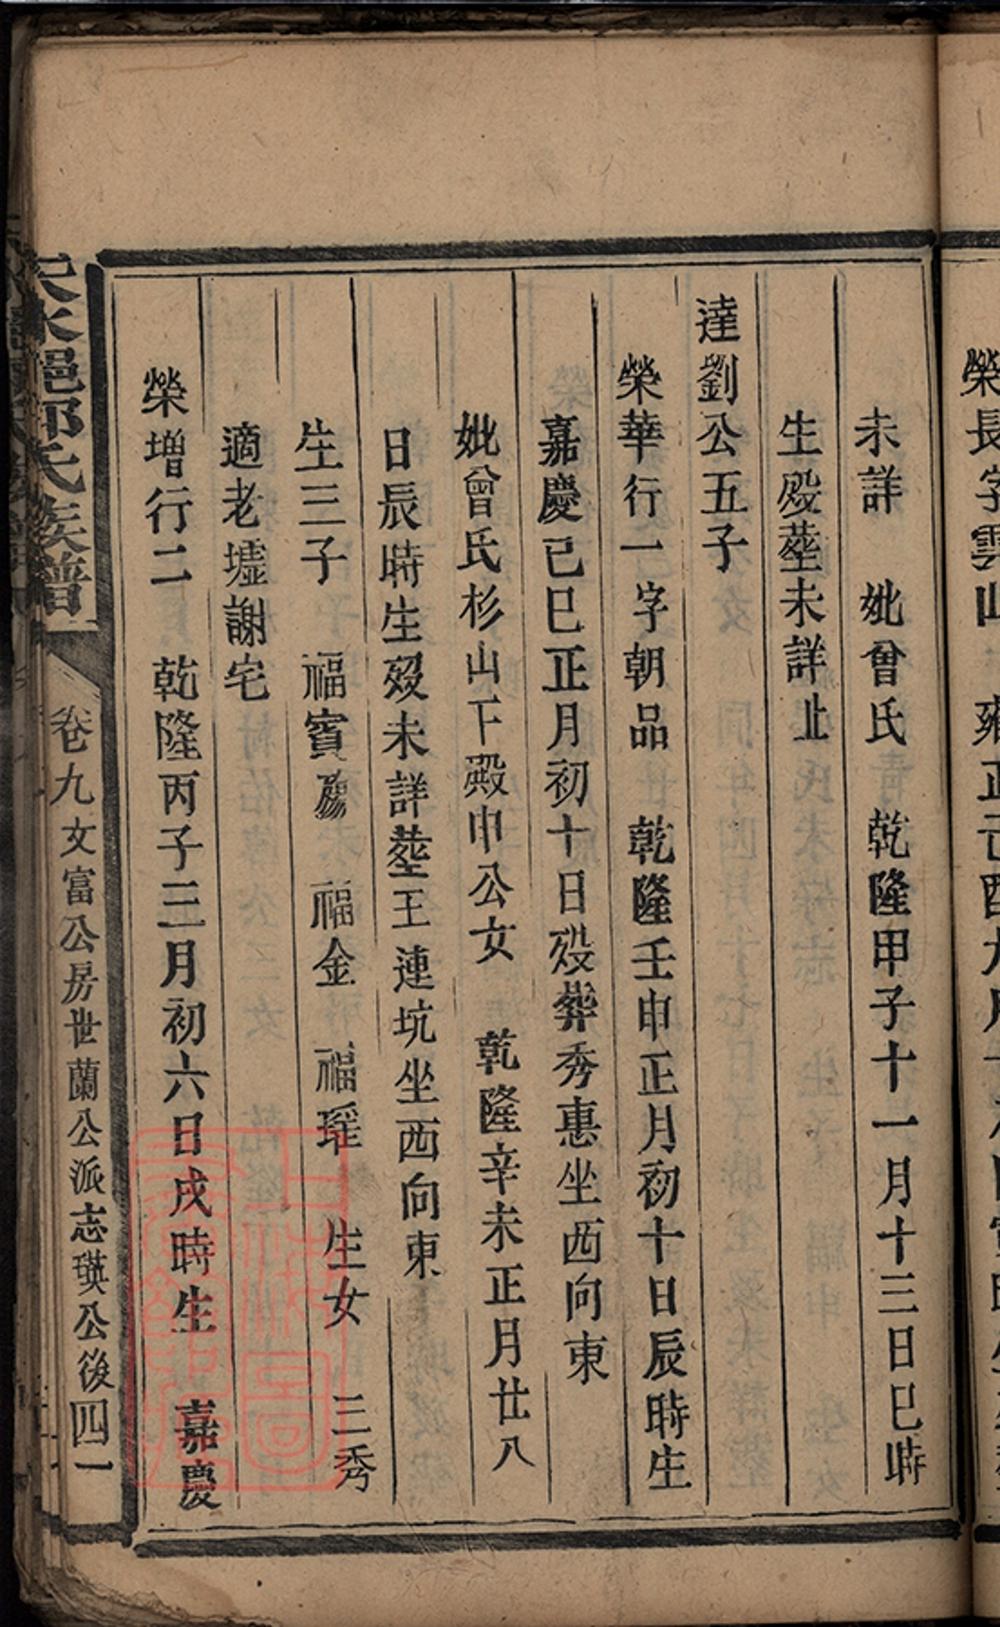 未詳 妣曾氏 乾隆甲子十一月十三日巳時
生殁塟未詳止
達劉公五子
榮華行一字朝品 乾隆壬申正月初十日辰時生
嘉慶己巳正月初十日殁葬秀惠坐西向東
妣曾氏杉山下殿申公女 乾隆辛未正月廿八
日辰時生殁未詳塟王連坑坐西向東
生三子 福賓 福金 福瑶 生女 三秀
適老墟謝宅
榮增行二 乾隆丙子三月初六日戌時生 嘉慶
氏族譜
卷九 文富公房世蘭公派志瑛公後 四一
榮長字雲山 雍正己酉九月